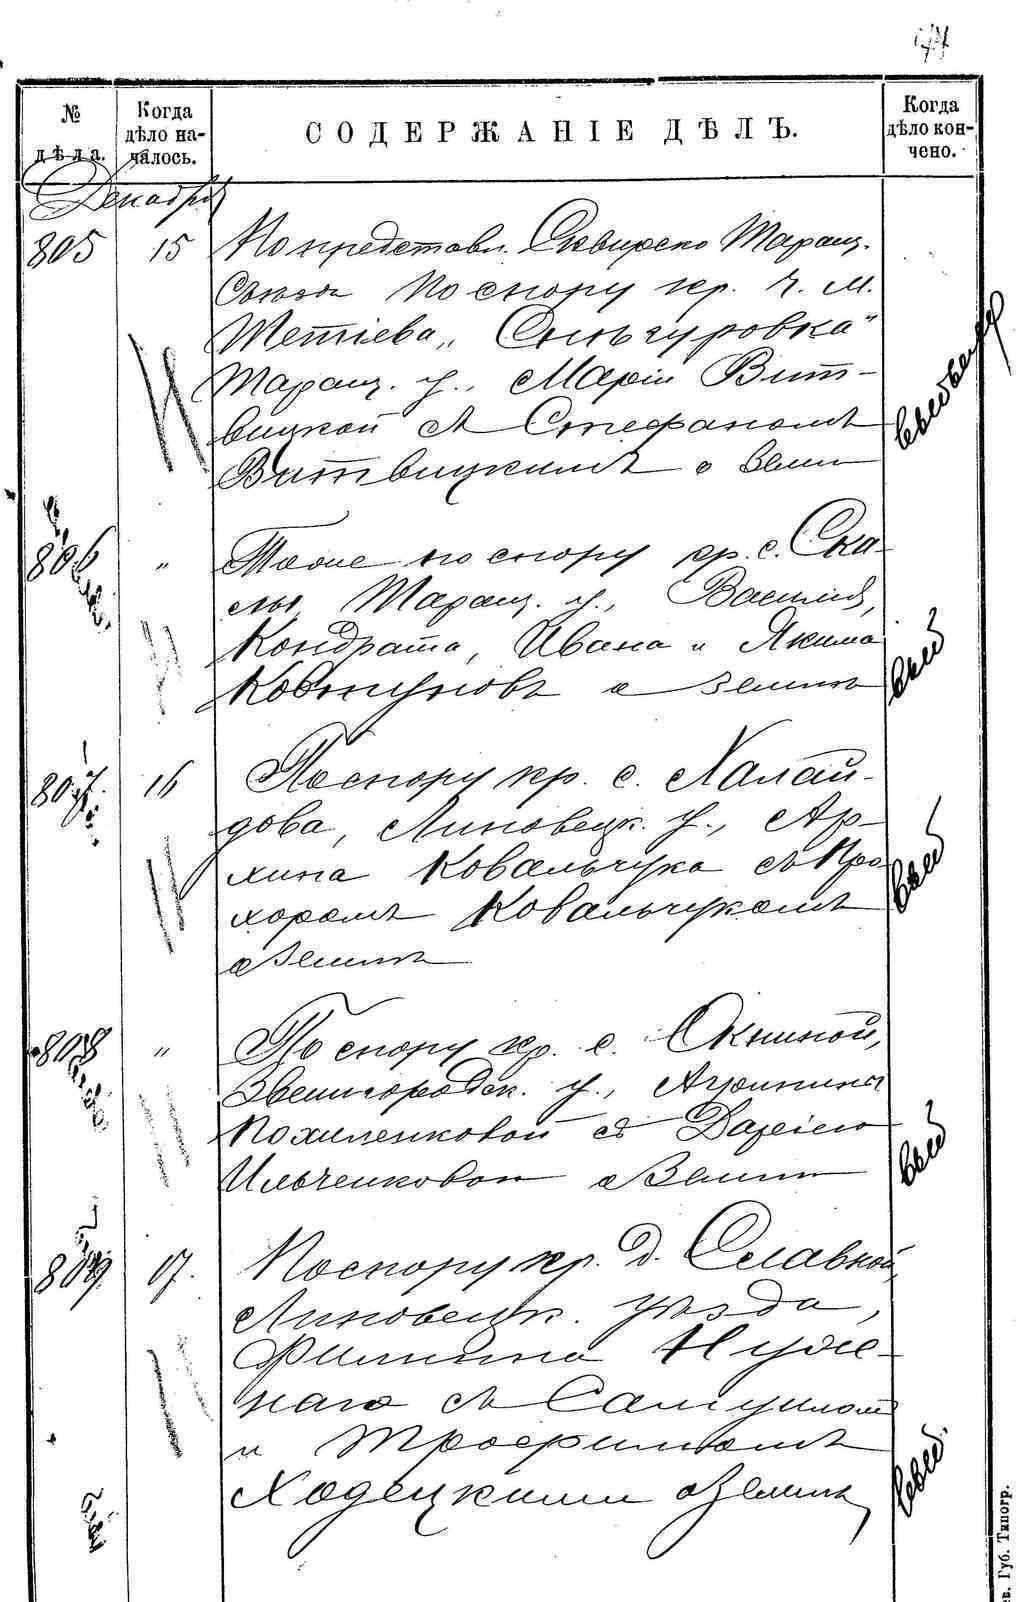 № дѣла.
Когда дѣло началось.
СОДЕРЖАНІЕ ДѢЛЪ.
Когда дѣло кончено.
Декабрь
805 15 По представл. Сквирско Таращ.
Съѣзда по спору кр. ч. м.
Тетіева „Снѣгуровка"
Таращ. у., Маріи Вит-
вицкой съ Стефаномъ
Витвицкимъ о земл
806 " Тоже по спору кр. с. Ска-
лы, Таращ. у., Василія,
Кондрата, Ивана и Якима
Ковтуновъ о землѣ
807. 16 По спору кр. с. Халаи-
дова, Липовецк. у., Ар-
хипа Ковальчука съ Про
хоромъ Ковальчукомъ
о землѣ
808 " По спору кр. с. Окниной,
Звенигородск. у., Агрипины
Похиленковой съ Даріею
Ильченковой о земл
809. 17. По спору кр. д. Славной,
Липовецк. уѣзда,
Филиппа Нуже-
наго съ Самуилом
и Трофимомъ
Ходецкими о землѣ
ев. Губ. Типогр.